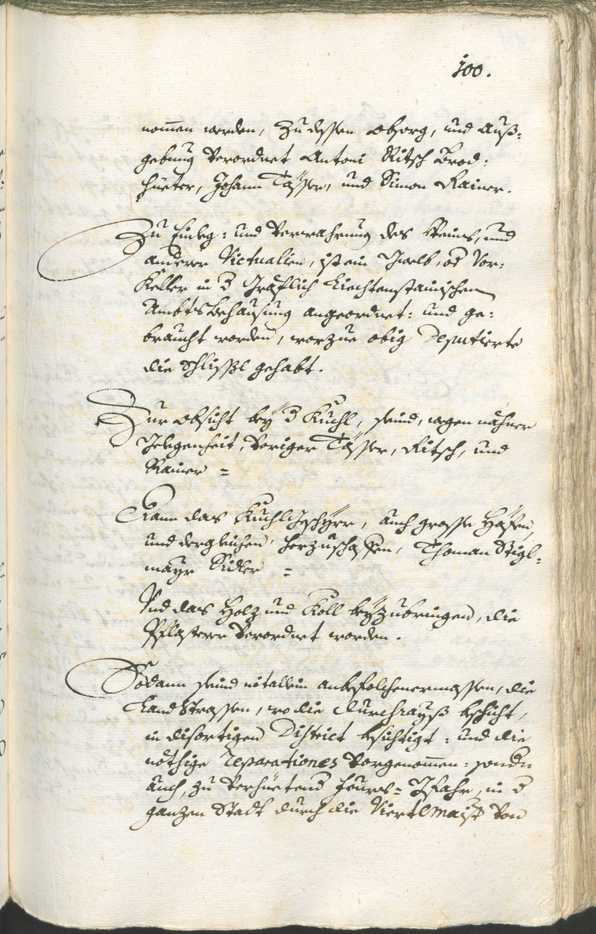 100.
nommen werden, zu dessen obsorg, und auß¬
gebung verordnet Antoni Ritsch Brod¬
hüeter, Johann Tasser, und Simon Rainer.
Zu Einleg- und verwahrung des Weins, und
anderer Victualien, ist ein Gwelb, od Vor¬
Keller in d Gräflich Liechtenstainischen
Ambtsbehausung angeordnet- und ge¬
braucht worden, worzue obig Deputierte
die Schlissl gehabt.
Zur obsicht bey d Kuchl, seind, wegen nähner
Gelegenheit, voriger Tasser, Ritsch, und
Rainer =
Dann das Kuchlgschürr, auch grosse Häfen,
und dergleichen herzuschaffen, Thoman Stigl¬
mayr Sidler =
Und das Holz und Koll beyzubringen, die
Pflasterer verordnet worden.
Sodann seind nit allein anbefolchenermassen, die
Land Strassen, wo die durchrayß beschicht,
in disortigen District besichtigt- und die
nöthige Reparationes vorgenommen- sondn
auch, zu verhüetend Feurs-Gfahr, in d
ganzen Statt durch die Viertlmaist von